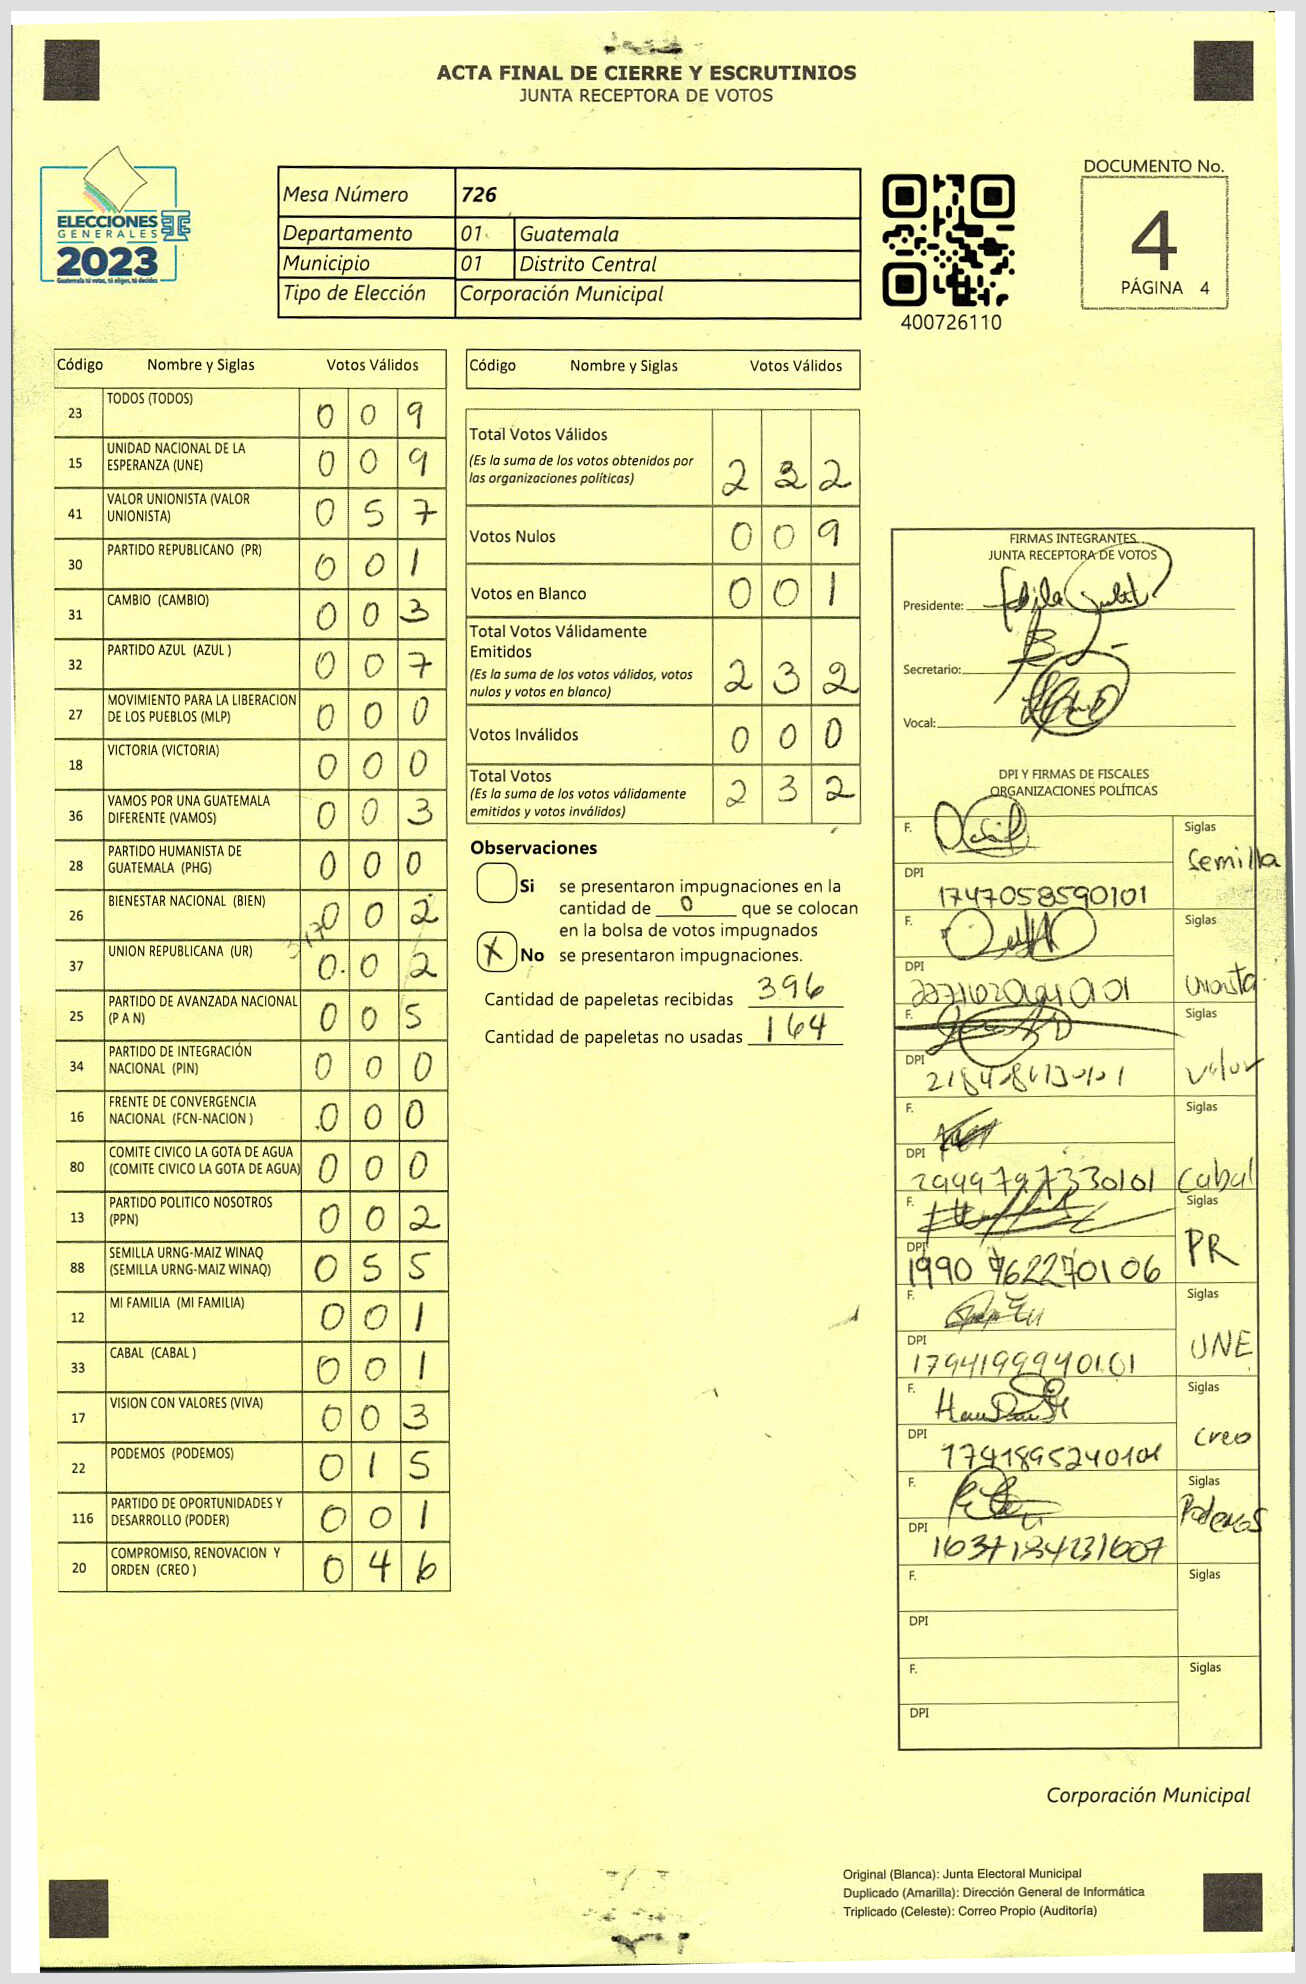 ACTA FINAL DE CIERRE Y ESCRUTINIOS
JUNTA RECEPTORA DE VOTOS
ELECCIONES
GENERALES
2023
Guatemala tú votas, tú eliges, tú decides
Mesa Número 726
Departamento 01 Guatemala
Municipio 01 Distrito Central
Tipo de Elección Corporación Municipal
400726110
DOCUMENTO No.
4
PÁGINA 4
Código Nombre y Siglas Votos Válidos
23 TODOS (TODOS) 0 0 9
15 UNIDAD NACIONAL DE LA ESPERANZA (UNE) 0 0 9
41 VALOR UNIONISTA (VALOR UNIONISTA) 0 5 7
30 PARTIDO REPUBLICANO (PR) 0 0 1
31 CAMBIO (CAMBIO) 0 0 3
32 PARTIDO AZUL (AZUL ) 0 0 7
27 MOVIMIENTO PARA LA LIBERACION DE LOS PUEBLOS (MLP) 0 0 0
18 VICTORIA (VICTORIA) 0 0 0
36 VAMOS POR UNA GUATEMALA DIFERENTE (VAMOS) 0 0 3
28 PARTIDO HUMANISTA DE GUATEMALA (PHG) 0 0 0
26 BIENESTAR NACIONAL (BIEN) 0 0 2
37 UNION REPUBLICANA (UR) 0 0 2
25 PARTIDO DE AVANZADA NACIONAL (P A N) 0 0 5
34 PARTIDO DE INTEGRACIÓN NACIONAL (PIN) 0 0 0
16 FRENTE DE CONVERGENCIA NACIONAL (FCN-NACION ) 0 0 0
80 COMITE CIVICO LA GOTA DE AGUA (COMITE CIVICO LA GOTA DE AGUA) 0 0 0
13 PARTIDO POLITICO NOSOTROS (PPN) 0 0 2
88 SEMILLA URNG-MAIZ WINAQ (SEMILLA URNG-MAIZ WINAQ) 0 5 5
12 MI FAMILIA (MI FAMILIA) 0 0 1
33 CABAL (CABAL ) 0 0 1
17 VISION CON VALORES (VIVA) 0 0 3
22 PODEMOS (PODEMOS) 0 1 5
116 PARTIDO DE OPORTUNIDADES Y DESARROLLO (PODER) 0 0 1
20 COMPROMISO, RENOVACION Y ORDEN (CREO ) 0 4 6
Código Nombre y Siglas Votos Válidos
Total Votos Válidos
(Es la suma de los votos obtenidos por
las organizaciones políticas) 2 2 2
Votos Nulos 0 0 9
Votos en Blanco 0 0 1
Total Votos Válidamente
Emitidos
(Es la suma de los votos válidos, votos
nulos y votos en blanco) 2 3 2
Votos Inválidos 0 0 0
Total Votos
(Es la suma de los votos válidamente
emitidos y votos inválidos) 2 3 2
Observaciones
Si se presentaron impugnaciones en la
cantidad de 0 que se colocan
en la bolsa de votos impugnados
X No se presentaron impugnaciones.
Cantidad de papeletas recibidas 396
Cantidad de papeletas no usadas 164
FIRMAS INTEGRANTES
JUNTA RECEPTORA DE VOTOS
Presidente:
Secretario:
Vocal:
DPI Y FIRMAS DE FISCALES
ORGANIZACIONES POLÍTICAS
F. Siglas
Semilla
DPI 1747058590101
F. Siglas
DPI
F. Siglas
Valor
DPI
F. Siglas
Cabal
DPI 2999797330101
F. Siglas
PR
DPI 1990 762270106
F. Siglas
UNE
DPI 1794199940101
F. Siglas
Creo
DPI 1741895240101
F. Siglas
Podemos
DPI
F. Siglas
DPI
F. Siglas
DPI
Corporación Municipal
Original (Blanca): Junta Electoral Municipal
Duplicado (Amarilla): Dirección General de Informática
Triplicado (Celeste): Correo Propio (Auditoría)